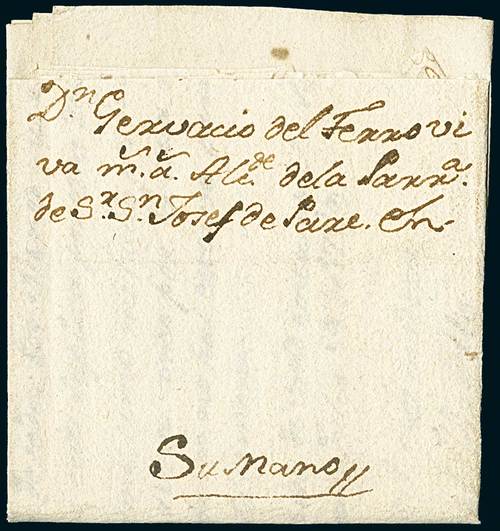 Dn Gervacio del Ferro vi
va m.s a.s Alc.de de la Parr.a
de Sr. Sn. Josef de Pare. en-
Su Mano